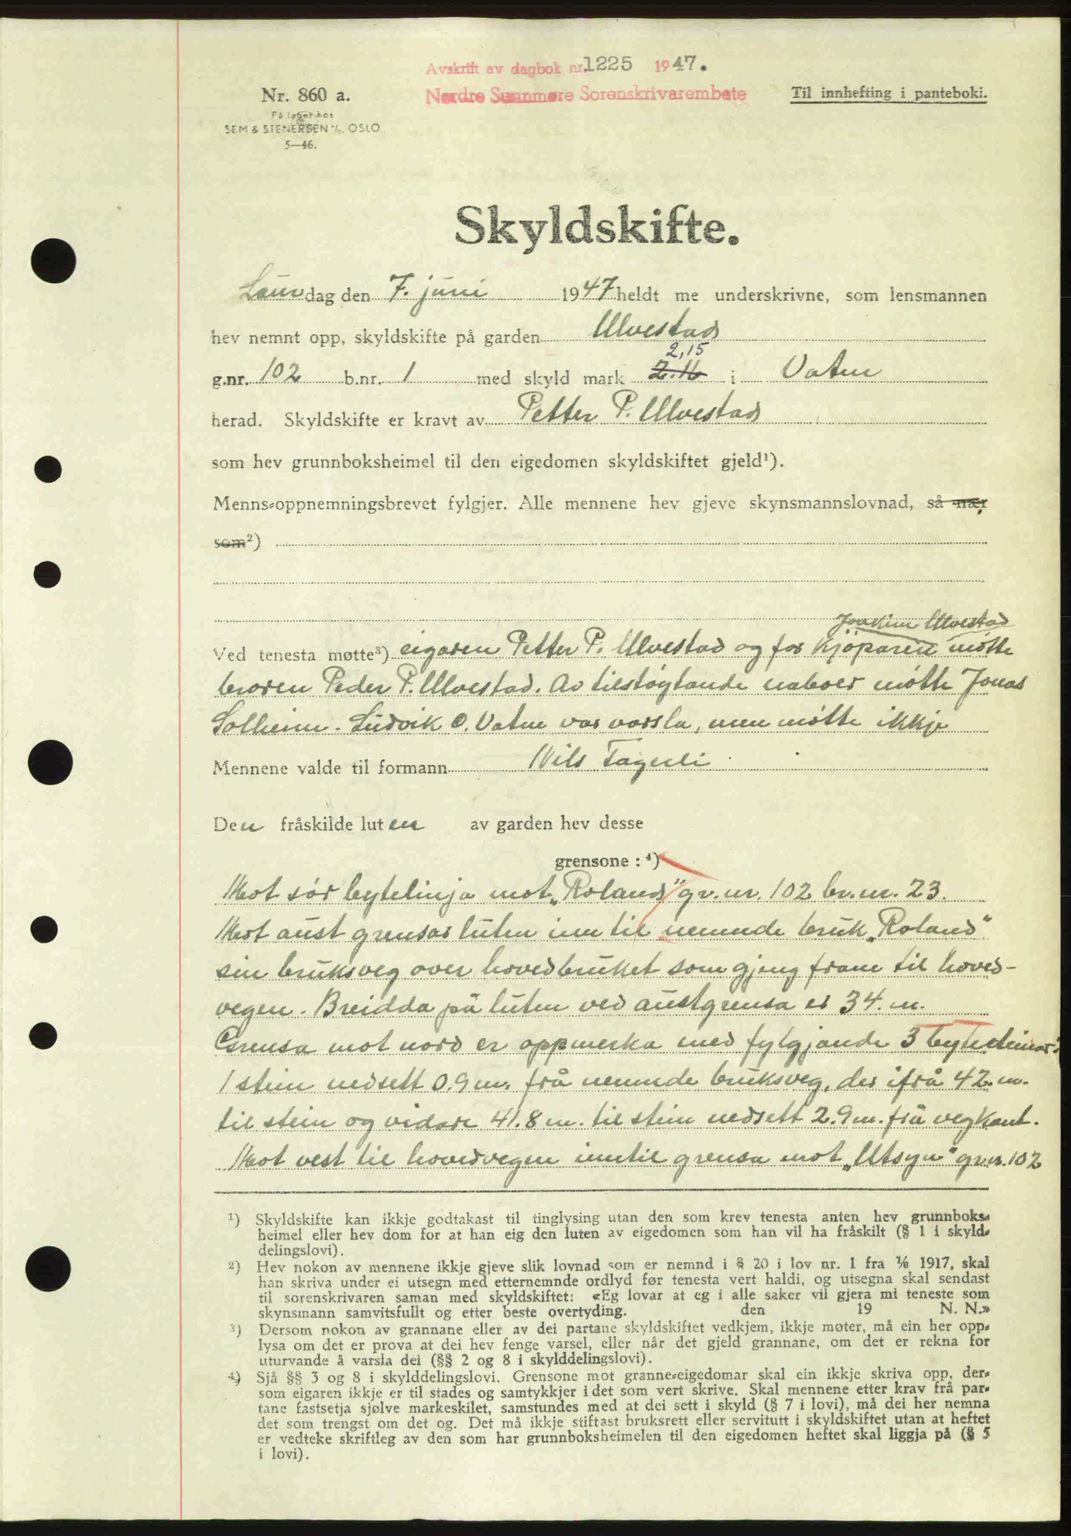 Avskrift av dagbok nr. 1225 1947.
Nordre Sunnmøre Sorenskrivarembete
Nr. 860 a.
Til innhefting i panteboki.
På lager hos
SEM & STENERSEN A/S. OSLO
5—46.
Skyldskifte.
Laurdag den 7. juni 1947 heldt me underskrivne, som lensmannen
hev nemnt opp, skyldskifte på garden Ulvestad
2,15
g.nr. 102 b.nr. 1 med skyld mark 2.16 i Vatne
herad. Skyldskifte er kravt av Petter P. Ulvestad
som hev grunnboksheimel til den eigedomen skyldskiftet gjeld¹).
Menns-oppnemningsbrevet fylgjer. Alle mennene hev gjeve skynsmannslovnad, så nær
som²)
Joakim Ulvestad
Ved tenesta møtte³) eigaren Petter P. Ulvestad og for kjöparen møtte
broren Peder P. Ulvestad. Av tilstøytande naboer møtte Jonas
Solheim. Ludvik O. Vatne var varsla, men møtte ikkje
Mennene valde til formann Nils Fagerli.
Den fråskilde luten av garden hev desse
grensone: ⁴)
Mot sør bytelinja mot „Roland" gr.nr. 102 br.nr. 23.
Mot aust grensar luten inn til nemnde bruk „Roland"
sin bruksveg over hovedbruket som gjeng fram til hoved-
vegen. Breidda på luten ved austgrensa er 34. m.
Grensa mot nord er oppmerka med fylgjande 3 bytesteinar:
1 stein nedsett 0.9 m. frå nemnde bruksveg, der ifrå 42. m.
til stein og vidare 41.8 m. til stein nedsett 2.9 m. frå vegkant.
Mot vest til hovedvegen inntil grensa mot „Utsyn" gr.nr. 102
¹) Skyldskifte kan ikkje godtakast til tinglysing utan den som krev tenesta anten hev grunnboks-
heimel eller hev dom for at han eig den luten av eigedomen som han vil ha fråskilt (§ 1 i skyld-
delingslovi).
²) Hev nokon av mennene ikkje gjeve slik lovnad som er nemnd i § 20 i lov nr. 1 fra 1/6 1917, skal
han skriva under ei utsegn med etternemnde ordlyd før tenesta vert haldi, og utsegna skal sendast
til sorenskrivaren saman med skyldskiftet: «Eg lovar at eg i alle saker vil gjera mi teneste som
skynsmann samvitsfullt og etter beste overtyding. den 19 N. N.»
³) Dersom nokon av grannane eller av dei partane skyldskiftet vedkjem, ikkje møter, må ein her opp-
lysa om det er prova at dei hev fenge varsel, eller når det gjeld grannane, om det er rekna for
uturvande å varsla dei (§§ 2 og 8 i skylddelingslovi).
⁴) Sjå §§ 3 og 8 i skylddelingslovi. Grensone mot granne-eigedomar skal ein ikkje skriva opp, der-
som eigaren ikkje er til stades og samtykkjer i det som vert skrive. Skal mennene etter krav frå par-
tane fastsetja sjølve markeskilet, samstundes med at dei sett i skyld (§ 7 i lovi), må dei her nemna
det som trengst om det og. Det må ikkje stiftast bruksrett eller servitutt i skyldskiftet utan at heftet
er vedteke skriftleg av den som har grunnboksheimelen til den eigedomen heftet skal liggja på (§ 5
i lovi).